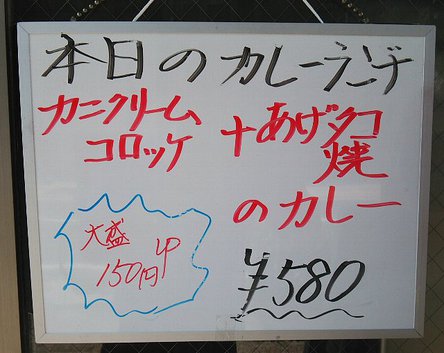 本日のカレーランチ
カニクリーム
コロッケ
+あげタコ
焼
のカレー
大盛
150円up
¥580